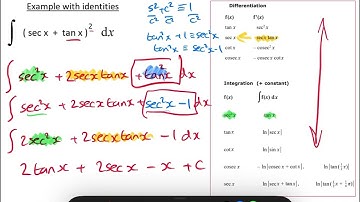 Example with identities
∫ (sec x + tan x)² dx
s²/c² + c²/c² ≡ 1/c²
tan²x + 1 ≡ sec²x
tan²x ≡ sec²x - 1
∫ sec²x + 2secxtanx + tan²x dx
∫ sec²x + 2secxtanx + sec²x - 1 dx
∫ 2sec²x + 2secxtanx - 1 dx
2tanx + 2secx - x + c
Differentiation
f(x) f'(x)
tan x sec²x
sec x sec x tan x
cot x -cosec²x
cosec x -cosec x cot x
Integration (+ constant)
f(x) ∫ f(x) dx
sec²x tan x
tan x ln|sec x|
cot x ln|sin x|
cosec x -ln|cosec x + cot x|, ln|tan(½x)|
sec x ln|sec x + tan x|, ln|tan(½x + ¼π)|